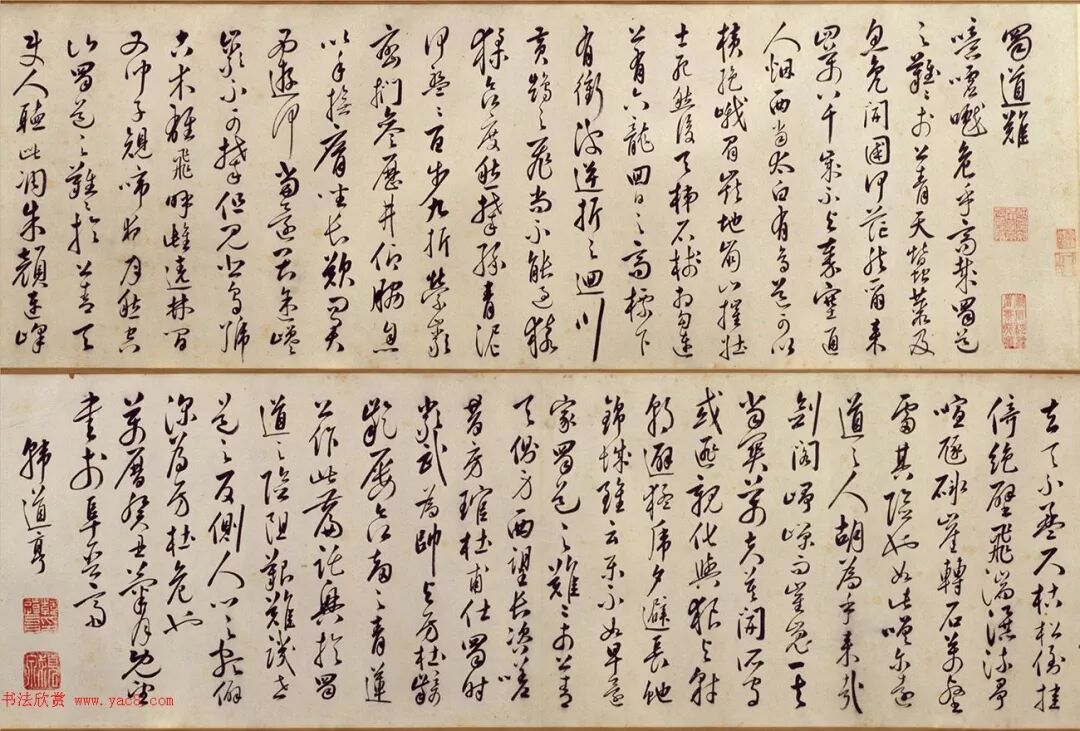 蜀道難
噫嘘嚱危乎高哉蜀道
之難難於上青天蠶叢及
魚鳧開國何茫然爾来
四萬八千歲不与秦塞通
人烟西當太白有鳥道可以
横絶峨眉巔地崩山摧壮
士死然後天梯石棧相鉤連
上有六龍回日之高標下
有衝波逆折之迴川
黄鶴之飛尚不能過猿
猱欲度愁攀緣青泥
何盤盤百步九折縈巖
巒捫參歷井仰脅息
以手撫膺坐長歎問君
西遊何當還畏途巉
巖不可攀但見悲鳥號
古木雄飛呼雌遶林間
又聞子規啼夜月愁空
山蜀道之難難於上青天
使人聽此凋朱顏連峰
去天不盈尺枯松倒挂
倚絶壁飛湍瀑流爭
喧豗砯崖轉石萬壑
雷其險也如此嗟尔遠
道之人胡為乎来哉
劍閣崢嶸而崔嵬一夫
當関萬夫莫開所守
或匪親化狼与豺
朝避猛虎夕避長蛇
錦城雖云樂不如早還
家蜀道之難難於上青
天側身西望長咨嗟
昔房琯杜甫仕蜀時
嚴武為帥与房杜齮
齕屢欲害之青蓮
公作此篇託興於蜀
道之險阻艱難譏世
道之反側人心之
深為房杜危也
萬曆癸丑月望
書於阜
韩道亨
书法欣赏 www.yac8.com